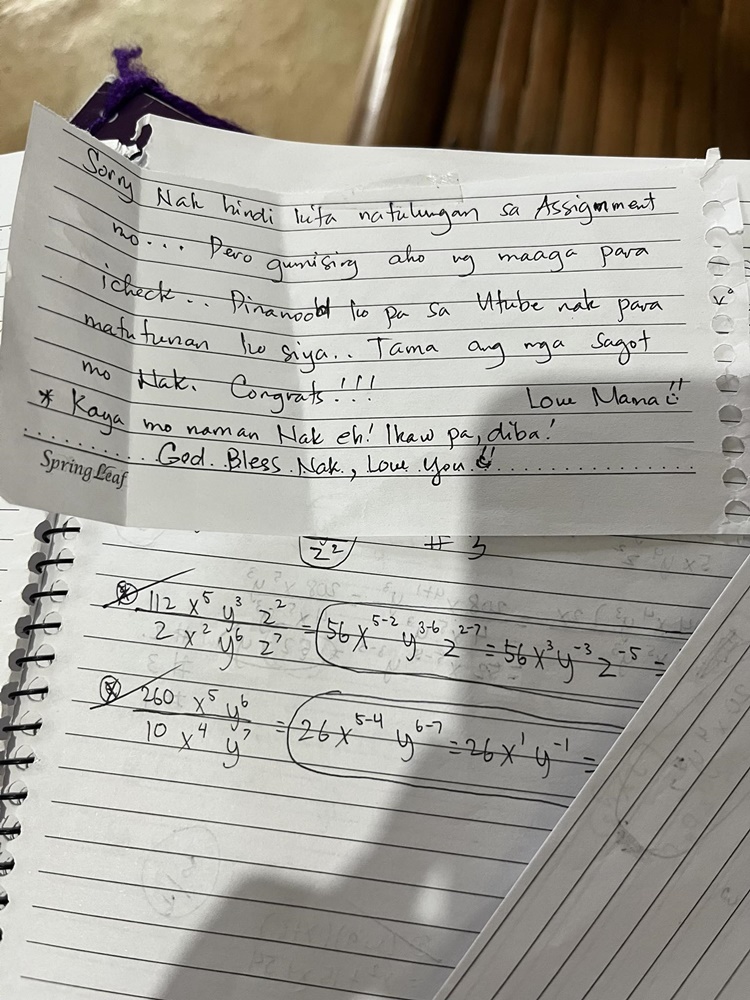 Sorry Nak hindi kita natulungan sa Assignment
mo... Pero gumising ako ng maaga para
icheck.. Pinanood ko pa sa Utube nak para
matutunan ko siya.. Tama ang mga sagot
mo Nak. Congrats!!!
Love Mama
* Kaya mo naman Nak eh! Ikaw pa, diba!
God Bless Nak, Love You
Spring Leaf
z² # 3
112 x⁵ y³ z² / 2 x² y⁶ z⁷ = 56x⁵⁻² y³⁻⁶ z²⁻⁷ = 56x³y⁻³z⁻⁵ =
260 x⁵ y⁶ / 10 x⁴ y⁷ = 26x⁵⁻⁴ y⁶⁻⁷ = 26x¹y⁻¹ =